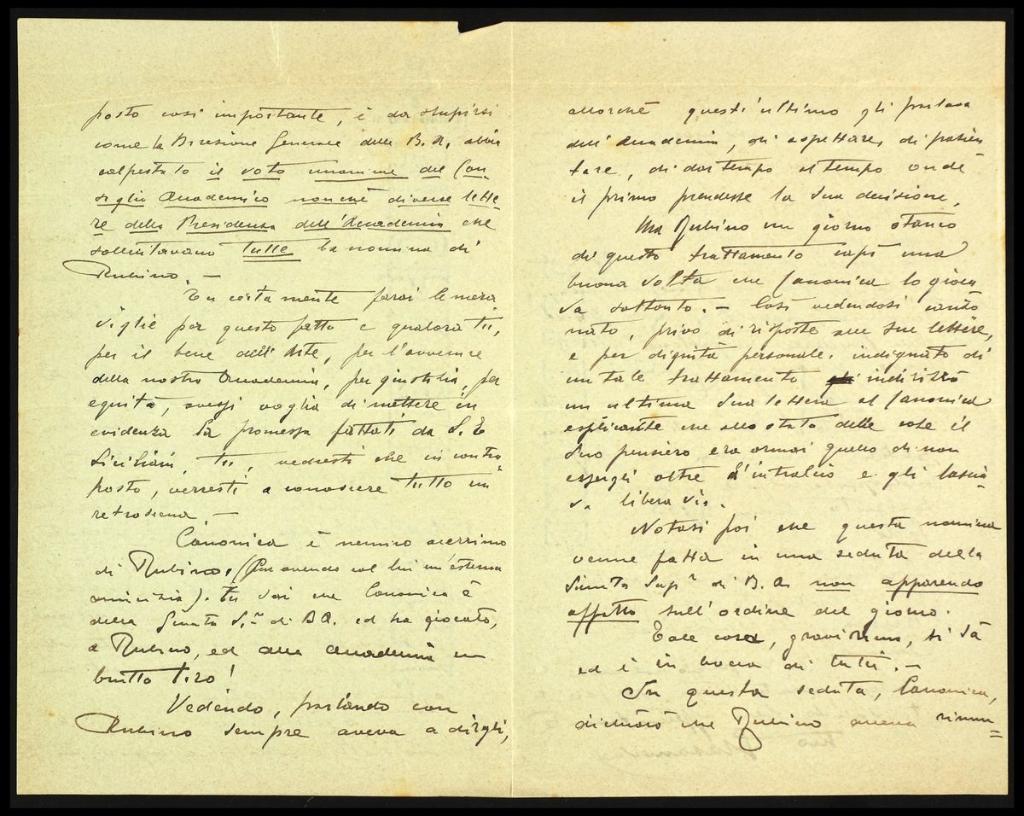 posto così importante, è da stupirsi
come la Direzione Generale delle B. A. abbia
calpestato il voto unanime del Con
siglio Accademico nonchè diverse lette
re della Presidenza dell'Accademia che
sollecitavano tutte la nomina di
Rubino. —
Tu certamente farai le mera
viglie per questo fatto e qualora tu,
per il bene dell'Arte, per l'avvenire
della nostra Accademia, per giustizia, per
equità, avessi voglia di mettere in
evidenza la promessa fattati da S. E
Siciliani, tu, vedresti che in contra
posto, verresti a conoscere tutto un
retroscena. —
Canonica è nemico acerrimo
di Rubino, (pur avendo col lui un'estesa
amicizia). Tu sai che Canonica è
della Giunta S.re di B.A. ed ha giocato,
a Rubino, ed alla Accademia un
brutto tiro!
Vedendo, parlando con
Rubino sempre aveva a dirgli,
allorchè quest'ultimo gli parlava
dell'Accademia, di aspettare, di pazien
tare, di dar tempo al tempo onde
il primo prendesse la sua decisione,
Ma Rubino un giorno stanco
di questo trattamento capì una
buona volta che Canonica lo gioca
va soltanto. — Così vedendosi
privo di risposte alle sue lettere,
e per dignità personale, indignato di
un tale trattamento indirizzò
un ultima sua lettera al Canonica
esplicante che allo stato delle cose il
suo pensiero era ormai quello di non
essergli oltre d'intralcio e gli lascia=
va libera via.
Notasi poi che questa nomina
venne fatta in una seduta della
Giunta Sup.re di B. A. non apparendo
affatto sull'ordine del giorno.
Tale cosa, gravissima, si sà
ed è in bocca di tutti. —
In questa seduta, Canonica,
dichiarò che Rubino aveva rinun=